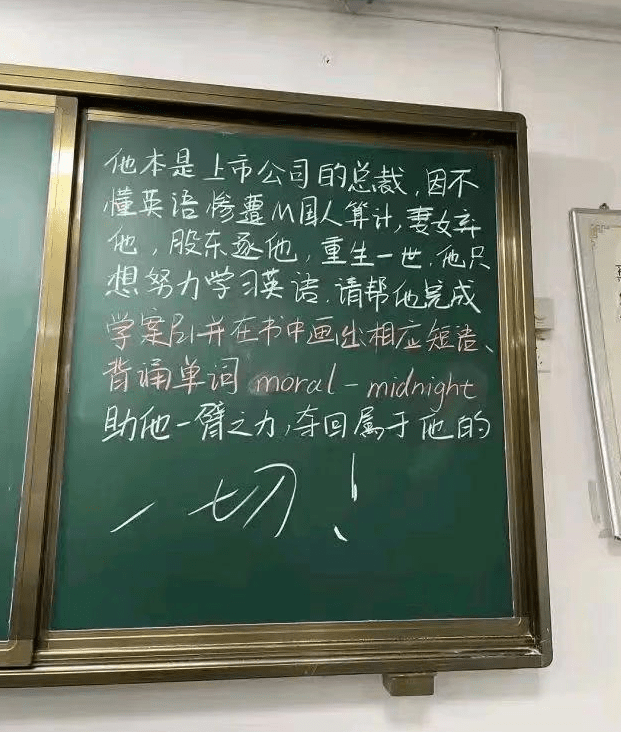 他本是上市公司的总裁,因不
懂英语惨遭M国人算计,妻女弃
他,股东逐他,重生一世,他只
想努力学习英语.请帮他完成
学案P21并在书中画出相应短语、
背诵单词 moral-midnight
助他一臂之力,夺回属于他的
一切!